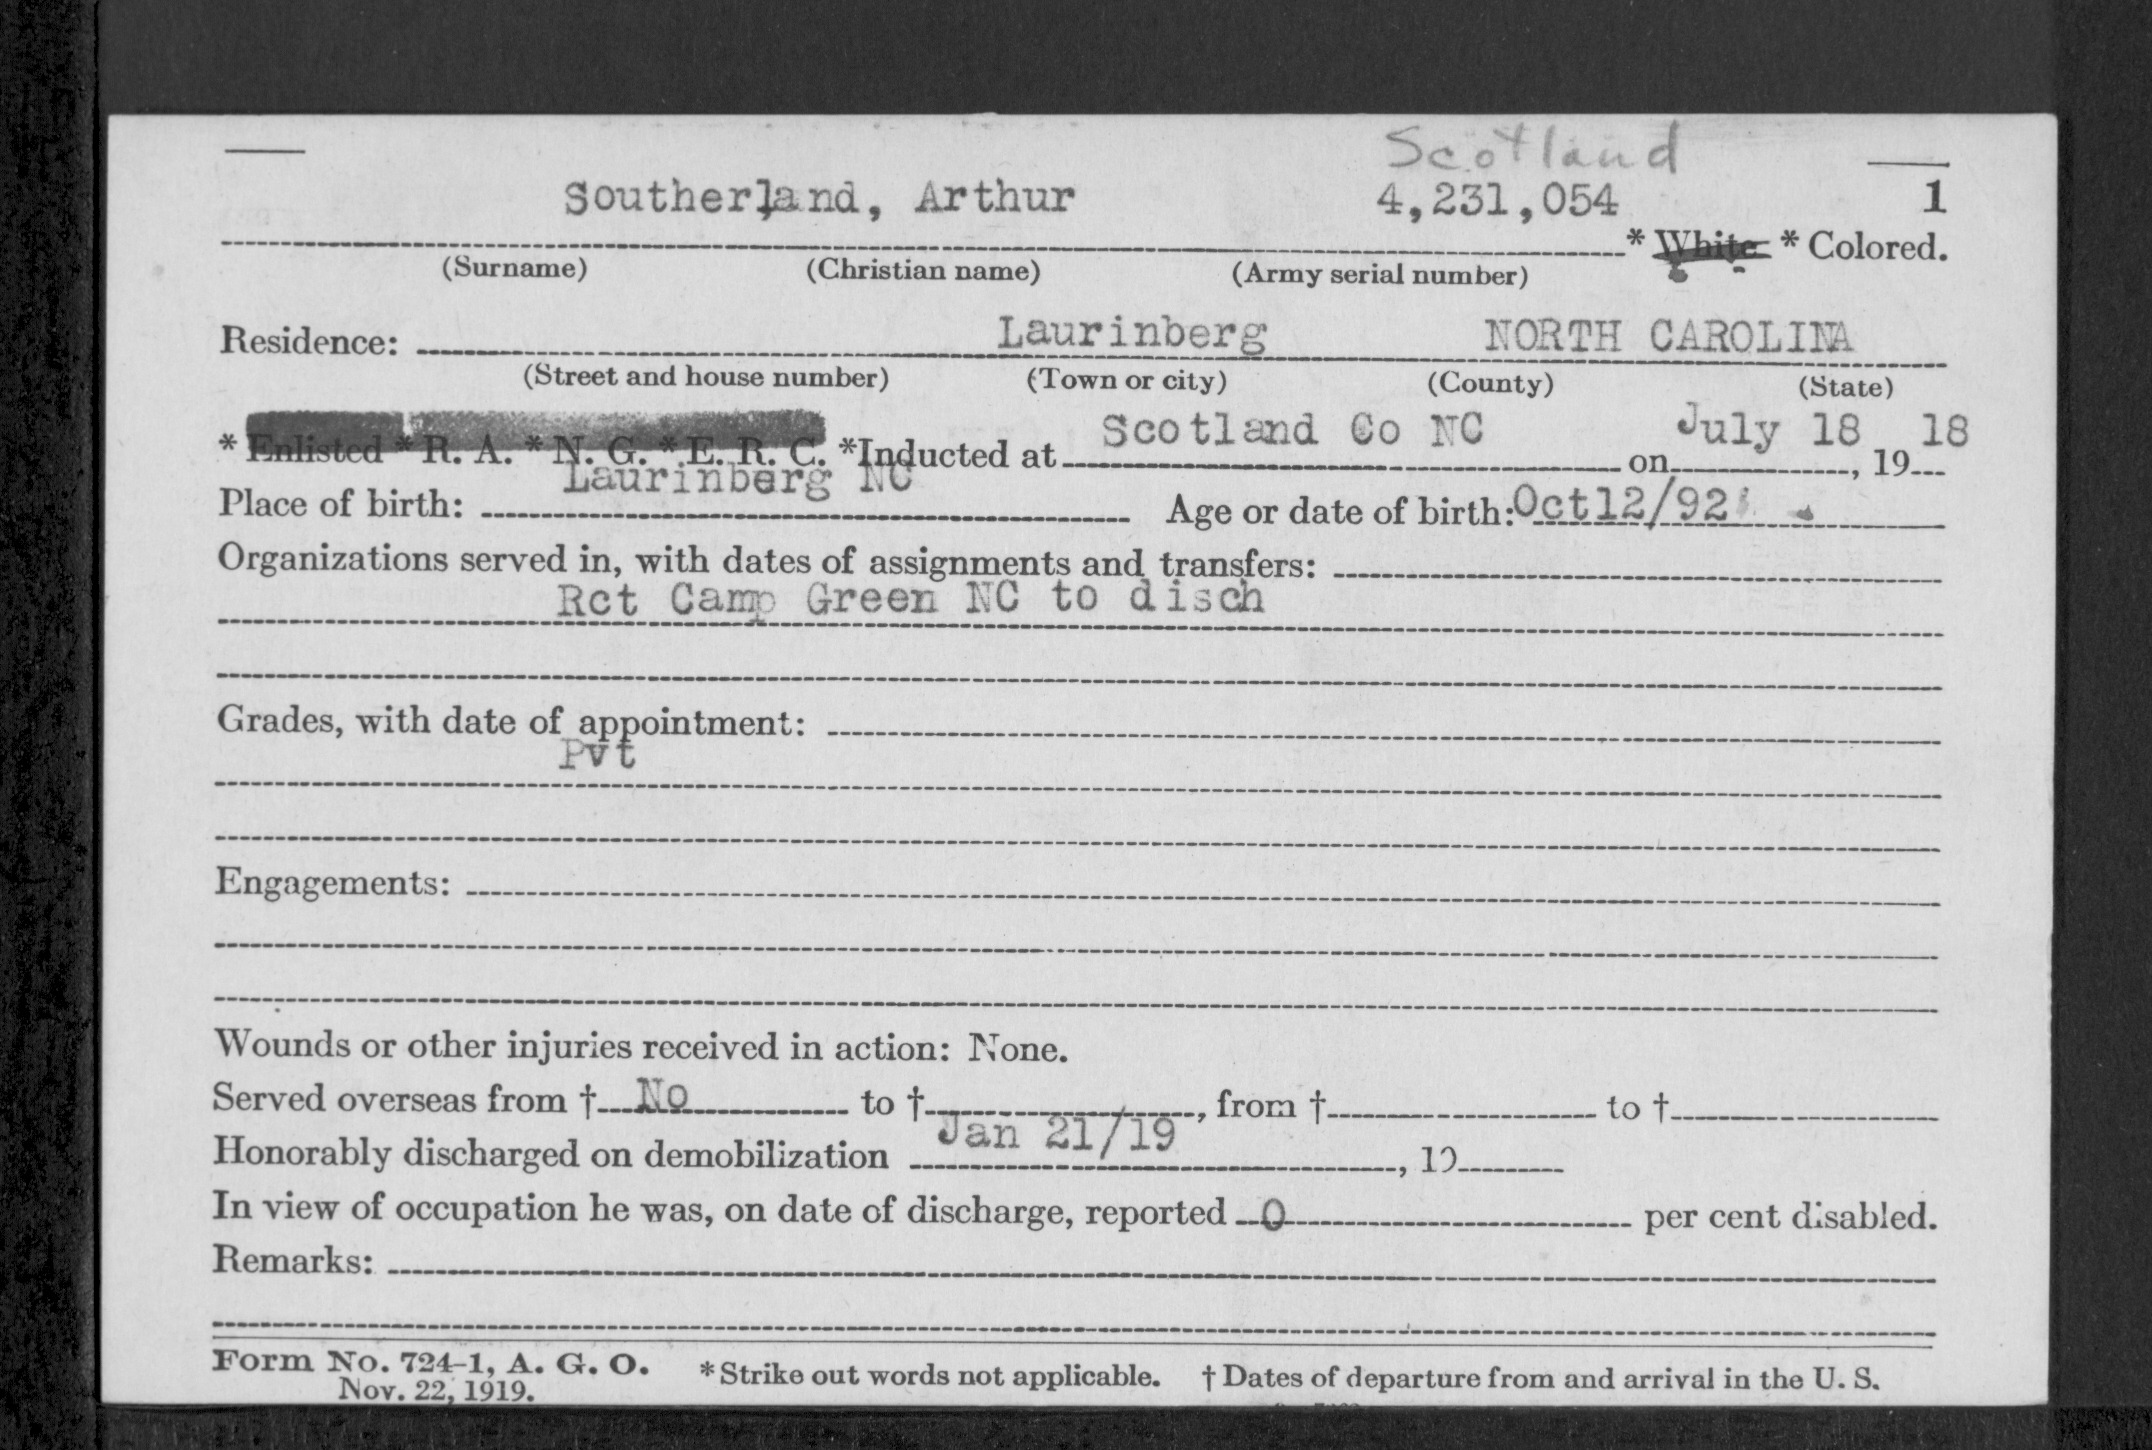 Scotland
Southerland, Arthur 4,231,054 1
* White * Colored.
(Surname) (Christian name) (Army serial number)
Residence: Laurinberg NORTH CAROLINA
(Street and house number) (Town or city) (County) (State)
* Enlisted * R. A. * N. G. * E. R. C. *Inducted at Scotland Co NC on July 18, 1918
Place of birth: Laurinberg NC Age or date of birth: Oct12/92
Organizations served in, with dates of assignments and transfers:
Rct Camp Green NC to disch
Grades, with date of appointment:
Pvt
Engagements:
Wounds or other injuries received in action: None.
Served overseas from † No to †, from † to †
Honorably discharged on demobilization Jan 21/19, 19
In view of occupation he was, on date of discharge, reported 0 per cent disabled.
Remarks:
Form No. 724-1, A. G. O. * Strike out words not applicable. † Dates of departure from and arrival in the U. S.
Nov. 22, 1919.